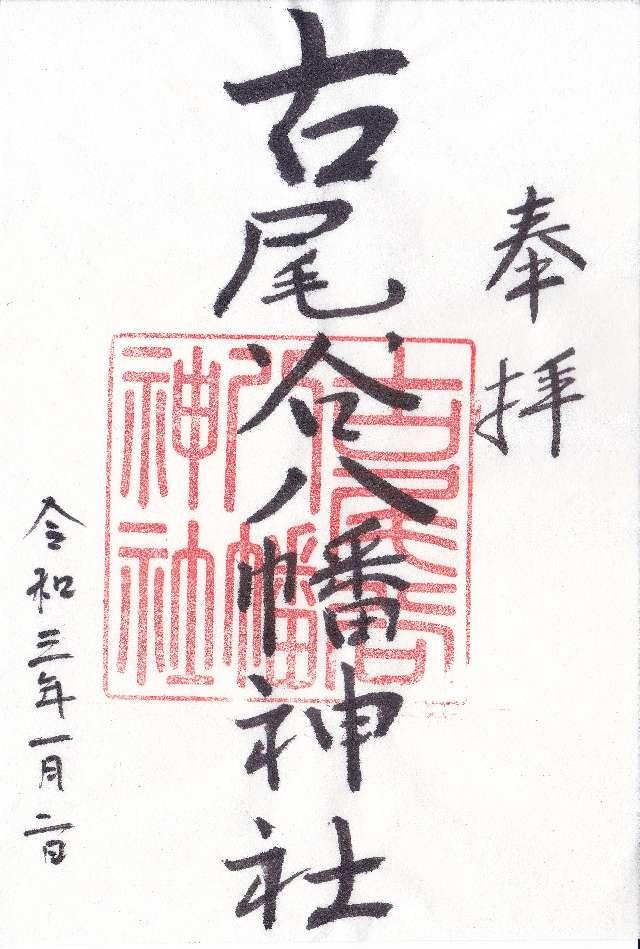 奉拝
古尾谷八幡神社
古尾谷
八幡
神社
令和三年一月二日